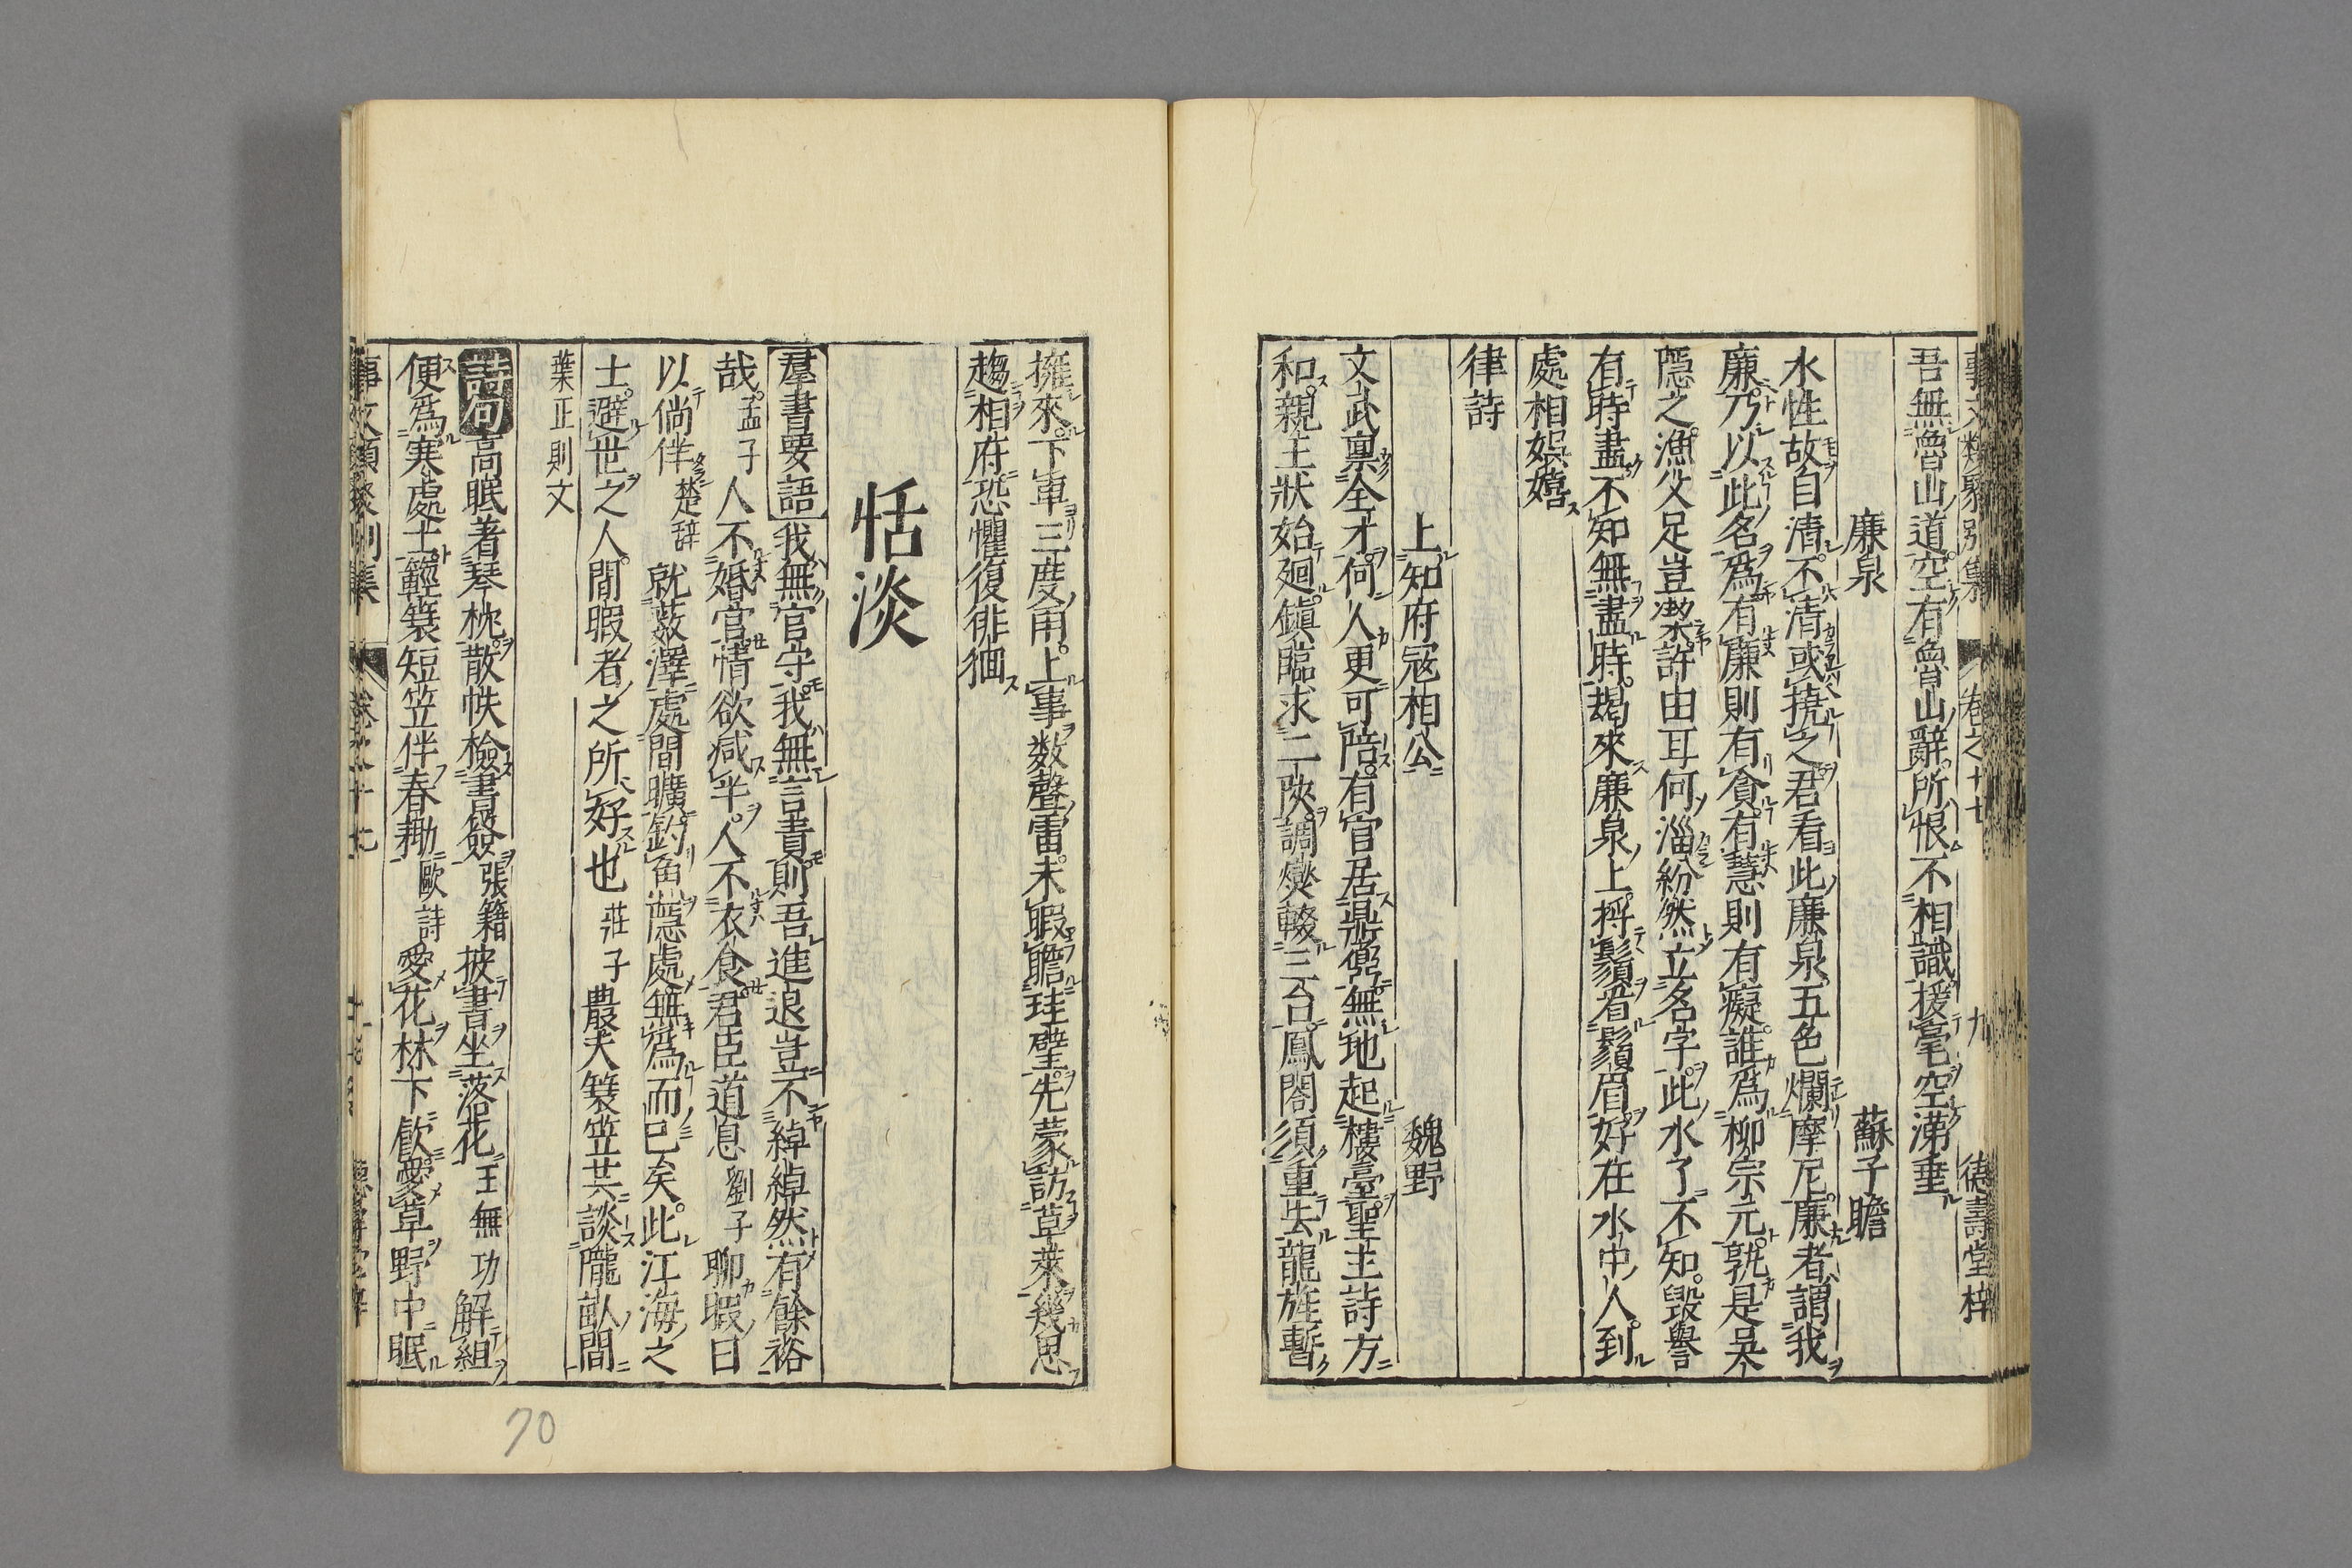 事文類聚別集 卷之十七 九 德壽堂梓
吾無魯山道空有魯山辭所恨不相識援毫空涕垂
廉泉 蘇子瞻
水性故自清不清或撓之君看此廉泉五色爛摩尼廉者謂我
廉乃以此名爲有廉則有貪有慧則有癡誰爲柳宗元孰是吳
隱之漁父足豈潔許由耳何淄紛然立名字此水了不知毀譽
有時盡不知無盡時朅來廉泉上捋鬚看鬚眉好在水中人到
處相娛嬉
律詩
上知府寇相公 魏野
文武禀全才何人更可陪有官居鼎鼐無地起樓臺聖主詩方
和親王狀始廻鎭臨求二陜調燮輟三台鳳閣須重去龍旌暫
擁來下車三度雨上事数聲雷未暇贍珪璧先蒙訪草萊幾思
趨相府恐懼復徘徊
恬淡
羣書要語 我無官守我無言責則吾進退豈不綽綽然有餘裕
哉 孟子 人不婚官情欲减半人不衣食君臣道息 劉子 聊暇日
以倘佯 楚辞 就薮澤處間曠釣魚隱處無爲而已矣此江海之
士避世之人間暇者之所好也 莊子 農夫簑笠共談隴畝間
葉正則文
詩句 高眠著琴枕散帙檢書簽 張籍 披書坐落花 王無功 解組
便爲寒處士輕簑短笠伴春耡 歐詩 愛花林下飲愛草野中眠
事文類聚別集 卷之十七
70